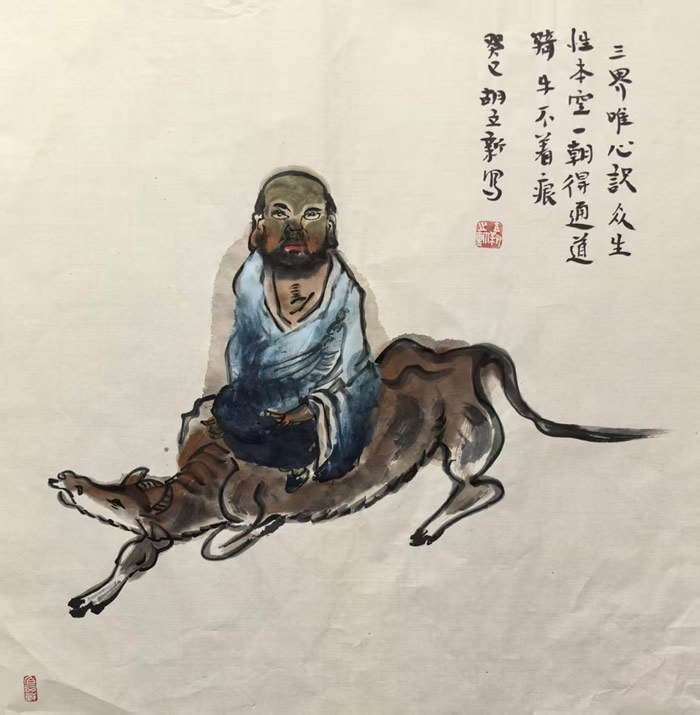 三界唯心识众生
性本空一朝得通道
骑牛不着痕
癸巳胡立新写